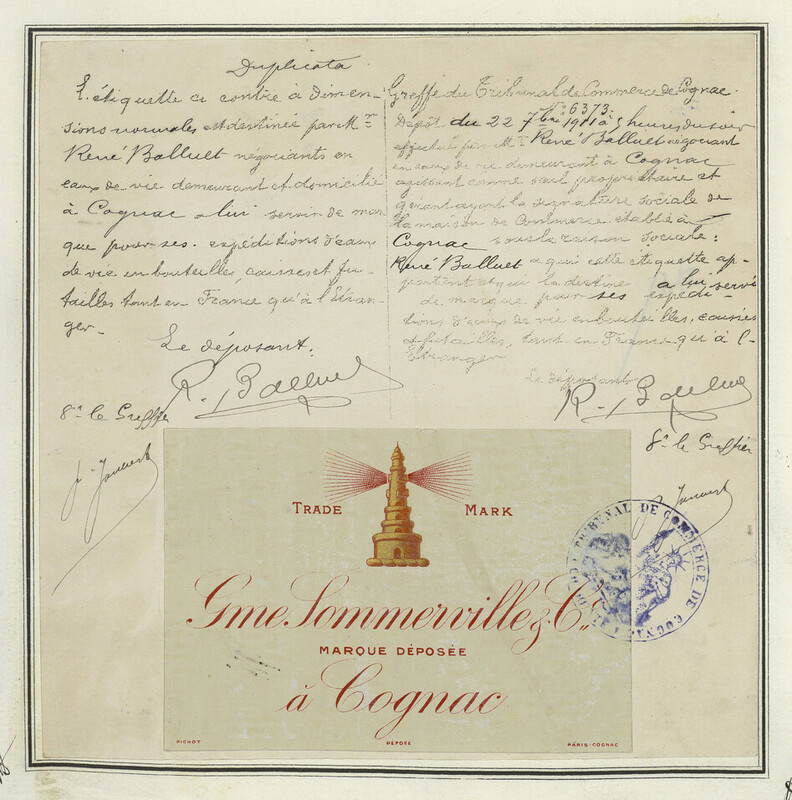 Duplicata
L'étiquette ci contre à dimen-
sions normales est destinée par Mr
René Balluet négociants en
eaux de vie demeurant et domicilié
à Cognac a lui servir de mar
que pour ses expéditions d'eaux
de vie en bouteilles, caisses et fu-
tailles tant en France qu'à l'Etran-
ger-
Le déposant.
R. Balluet
Sr le Greffier
Greffe du Tribunal de Commerce de Cognac.
No 6373.
Dépôt du 22 7bre 1911 à 5 heures du soir
effectué par Mr René Balluet négociant
en eaux de vie demeurant à Cognac
agissant comme seul propriétaire et
qu'ayant la signature sociale de
la maison de Commerce établie à
Cognac sous la raison sociale:
René Balluet a qui cette étiquette ap-
partient et qui la destine a lui servir
de marque pour ses expédi-
tions d'eaux de vie en bouteilles, caisses
et futailles, tant en France qu'à l'-
Etranger
Le déposant
R. Balluet
Sr le Greffier
TRADE MARK
Gme Sommerville & Co.
MARQUE DÉPOSÉE
à Cognac
PICHOT DÉPOSÉ PARIS-COGNAC
TRIBUNAL DE COMMERCE DE COGNAC